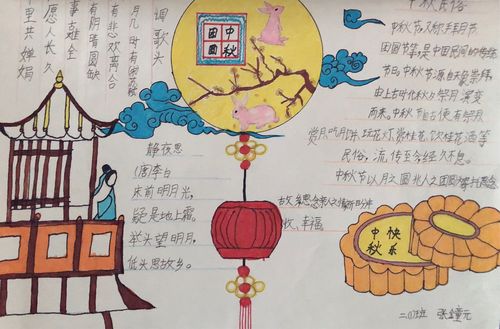 调歌头
月几时有
有悲欢离合
有阴晴圆缺
事古难全
愿人长久
里共婵娟
中秋
团圆
静夜思
(唐)李白
床前明月光,
疑是地上霜。
举头望明月,
低头思故乡。
中秋民俗
中秋节又称拜月节
团圆节等是中国民间的传统
节日。中秋节源自天象崇拜,
由上古时代秋夕祭月演变
而来。中秋节自古便有祭月
赏月、吃月饼、玩花灯、赏桂花、饮桂花酒等
民俗,流传至今经久不息。
中秋节以月之圆兆人之团圆为寄托思念
故乡思念亲人之情祈盼丰
收、幸福
中秋
快乐
二(1)班 张 元